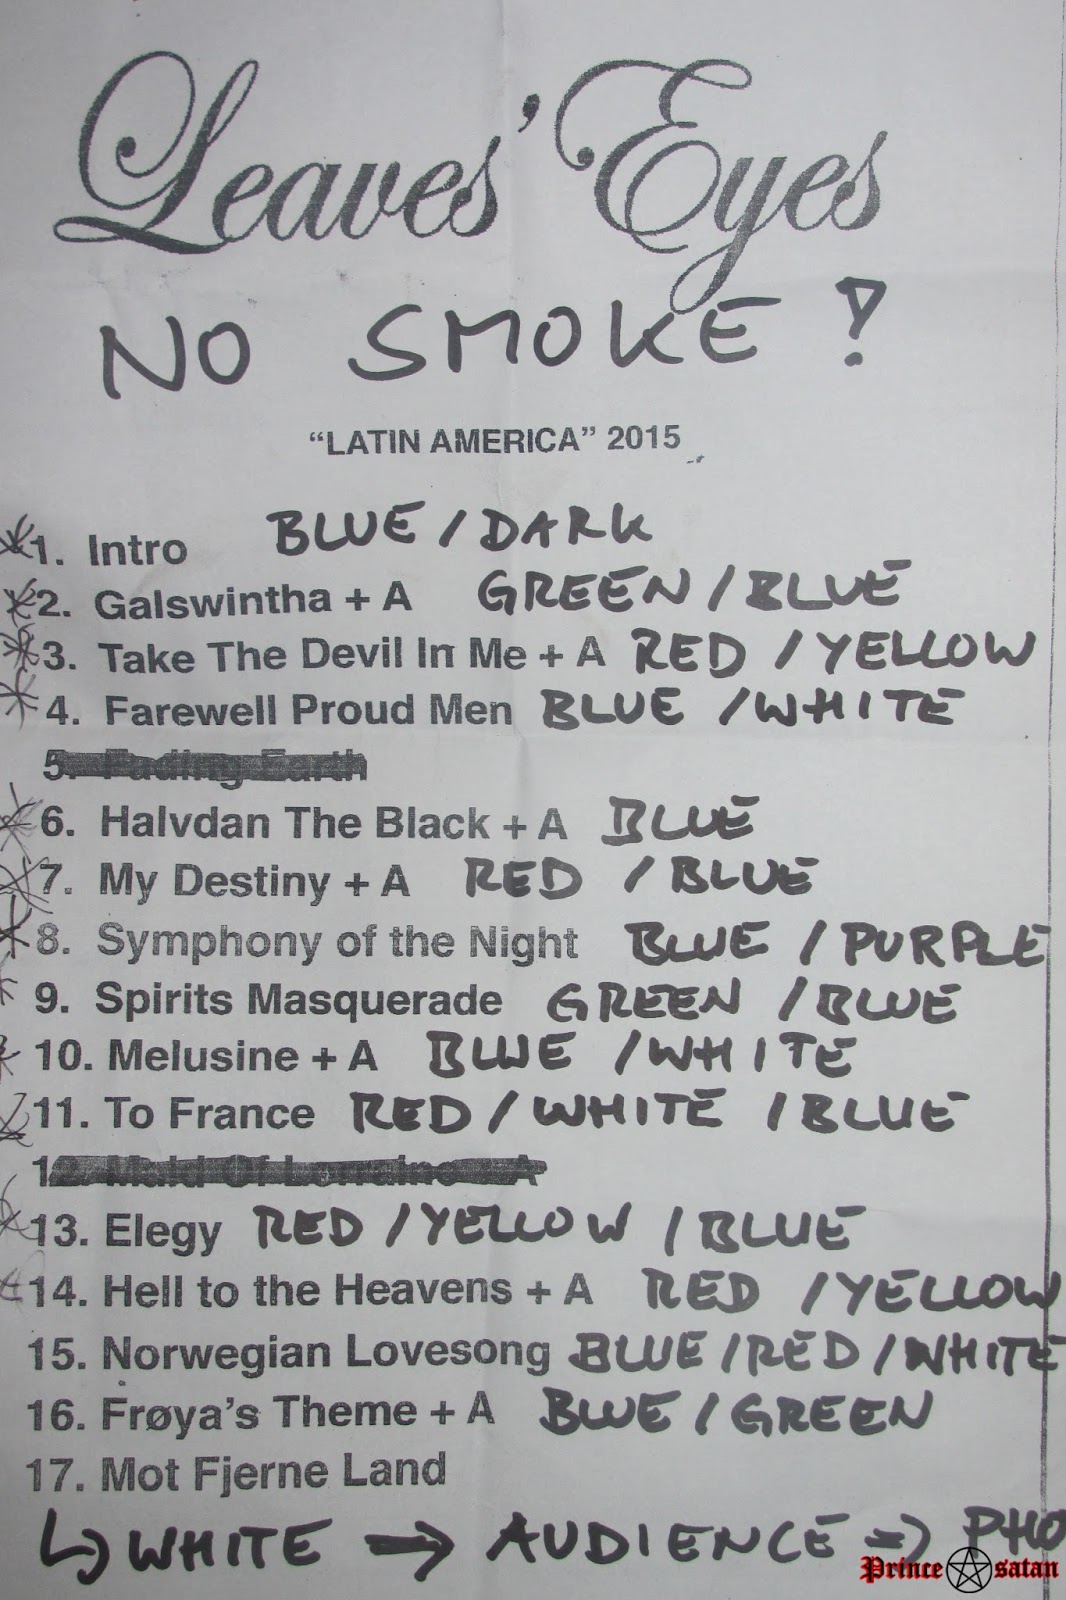 Leaves' Eyes
NO SMOKE!
“LATIN AMERICA” 2015
1. Intro BLUE / DARK
2. Galswintha + A GREEN / BLUE
3. Take The Devil In Me + A RED / YELLOW
4. Farewell Proud Men BLUE / WHITE
5. Fading Earth
6. Halvdan The Black + A BLUE
7. My Destiny + A RED / BLUE
8. Symphony of the Night BLUE / PURPLE
9. Spirits Masquerade GREEN / BLUE
10. Melusine + A BLUE / WHITE
11. To France RED / WHITE / BLUE
12. Maid Of Lorraine + A
13. Elegy RED / YELLOW / BLUE
14. Hell to the Heavens + A RED / YELLOW
15. Norwegian Lovesong BLUE / RED / WHITE
16. Frøya’s Theme + A BLUE / GREEN
17. Mot Fjerne Land
↳ WHITE → AUDIENCE ⇒ PHO
Prince satan